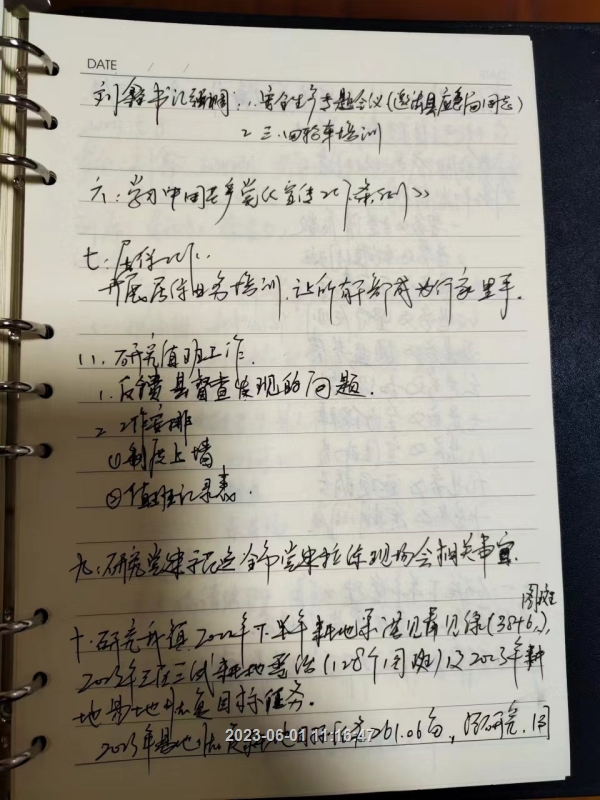 DATE / /
书记强调：1. 安全生产专题会议(邀请县应急局同志)
2 三、四轮车培训
六：学习中国共产党《宣传工作条例》
七：医保工作：
开展医保业务培训，让所有干部成为行家里手。
八. 研究值班工作.
1. 反馈县督查发现的问题.
2 工作安排
①制度上墙
②值班记录表.
九：研究党史 全市党史 现场会相关事宜.
图斑
十. 研究 镇2022年下半年耕地 (3846.),
2023年 耕地 (128个图斑)及2023年耕
地基地恢复目标任务.
2023年基地恢复耕地目标任务261.06亩, 经研究. 同
2023-06-01 11:16:47